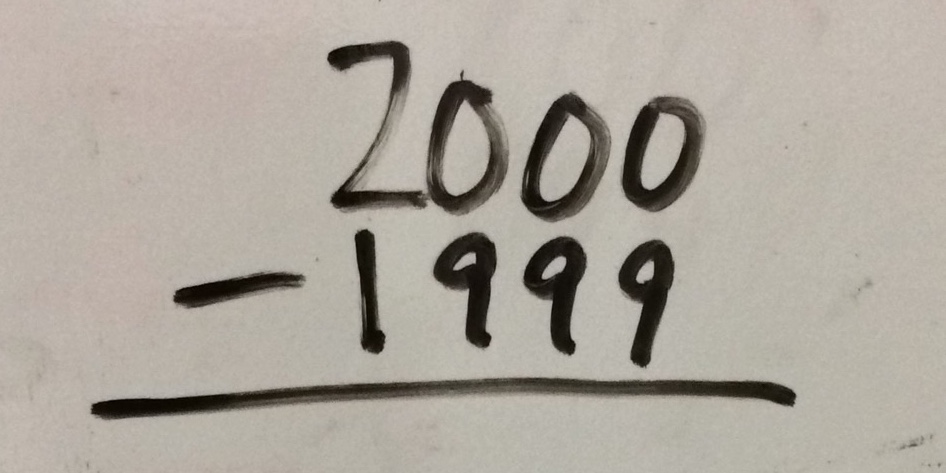 2000
- 1999